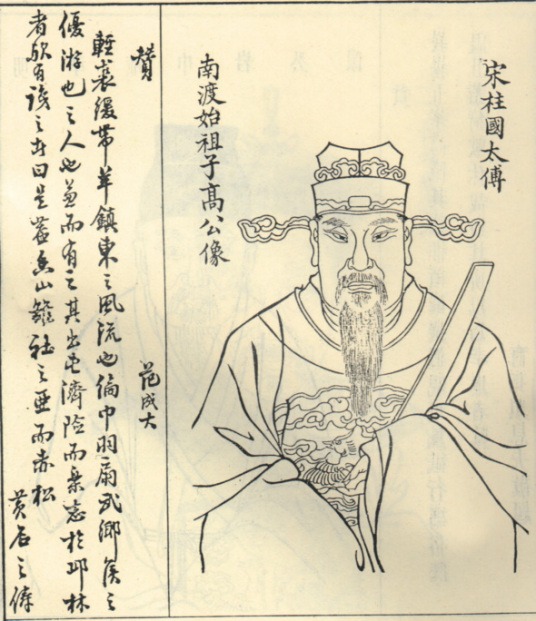 宋柱國太傅
南渡始祖子高公像
贊
范成大
輕裘緩帶羊鎮東之風流也綸巾羽扇武鄉侯之
優游也之人也兼而有之其出也濟險而棄志於邱林
者歟有識之者曰是 山 之亞而赤松
黃石之儔